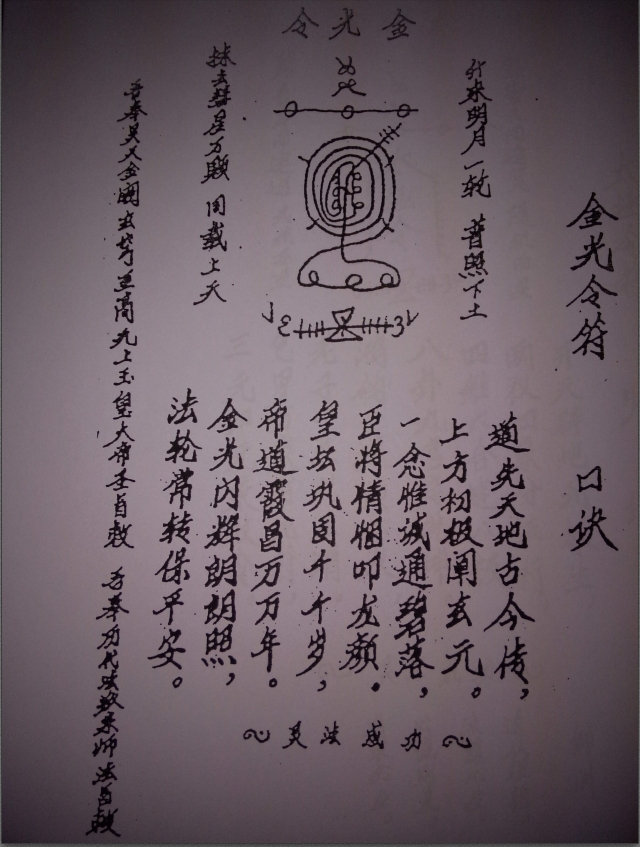 金光令
金光令符 口诀
来明月一轮 普照下土
抹去彗星万颗 同载上天
道先天地古今传，
上方初极阐玄元。
一念惟诚通碧落，
臣将情悃叩龙颜。
皇坛巩固千千岁，
帝道霞昌万万年。
金光闪辉朗朗照，
法轮常转保平安。
灵法成功
奉昊天金阙玄穹至高九上玉皇大帝圣旨敕 奉历代法教宗师法旨敕